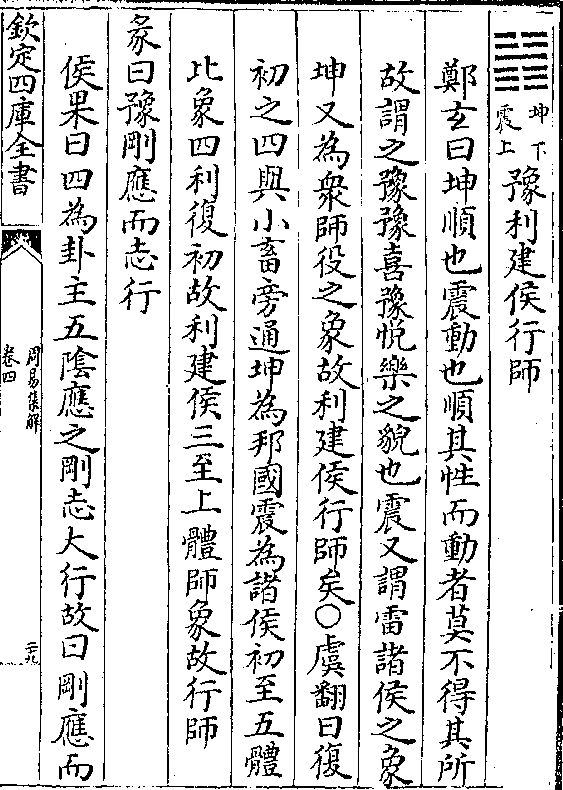 坤下
震上
豫利建侯行師
鄭玄曰坤順也震動也順其性而動者莫不得其所
故謂之豫豫喜豫悅樂之貌也震又謂雷諸侯之象
坤又為衆師役之象故利建侯行師矣○虞翻曰復
初之四與小畜旁通坤為邦國震為諸侯初至五體
比象四利復初故利建侯三至上體師象故行師
彖曰豫剛應而志行
侯果曰四為卦主五陰應之剛志大行故曰剛應而
欽定四庫全書
周易集解
卷四
二十九